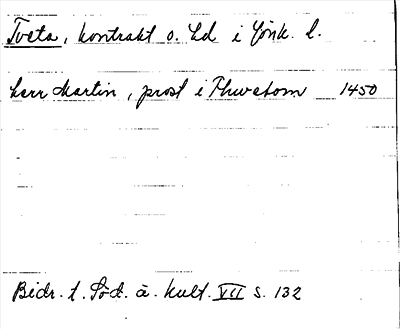 Tveta, kontrakt o. hd i Jönk. l.
herr Martin, prost i Thwetom 1450
Bidr. t. Söd. ä. kult. VII s. 132